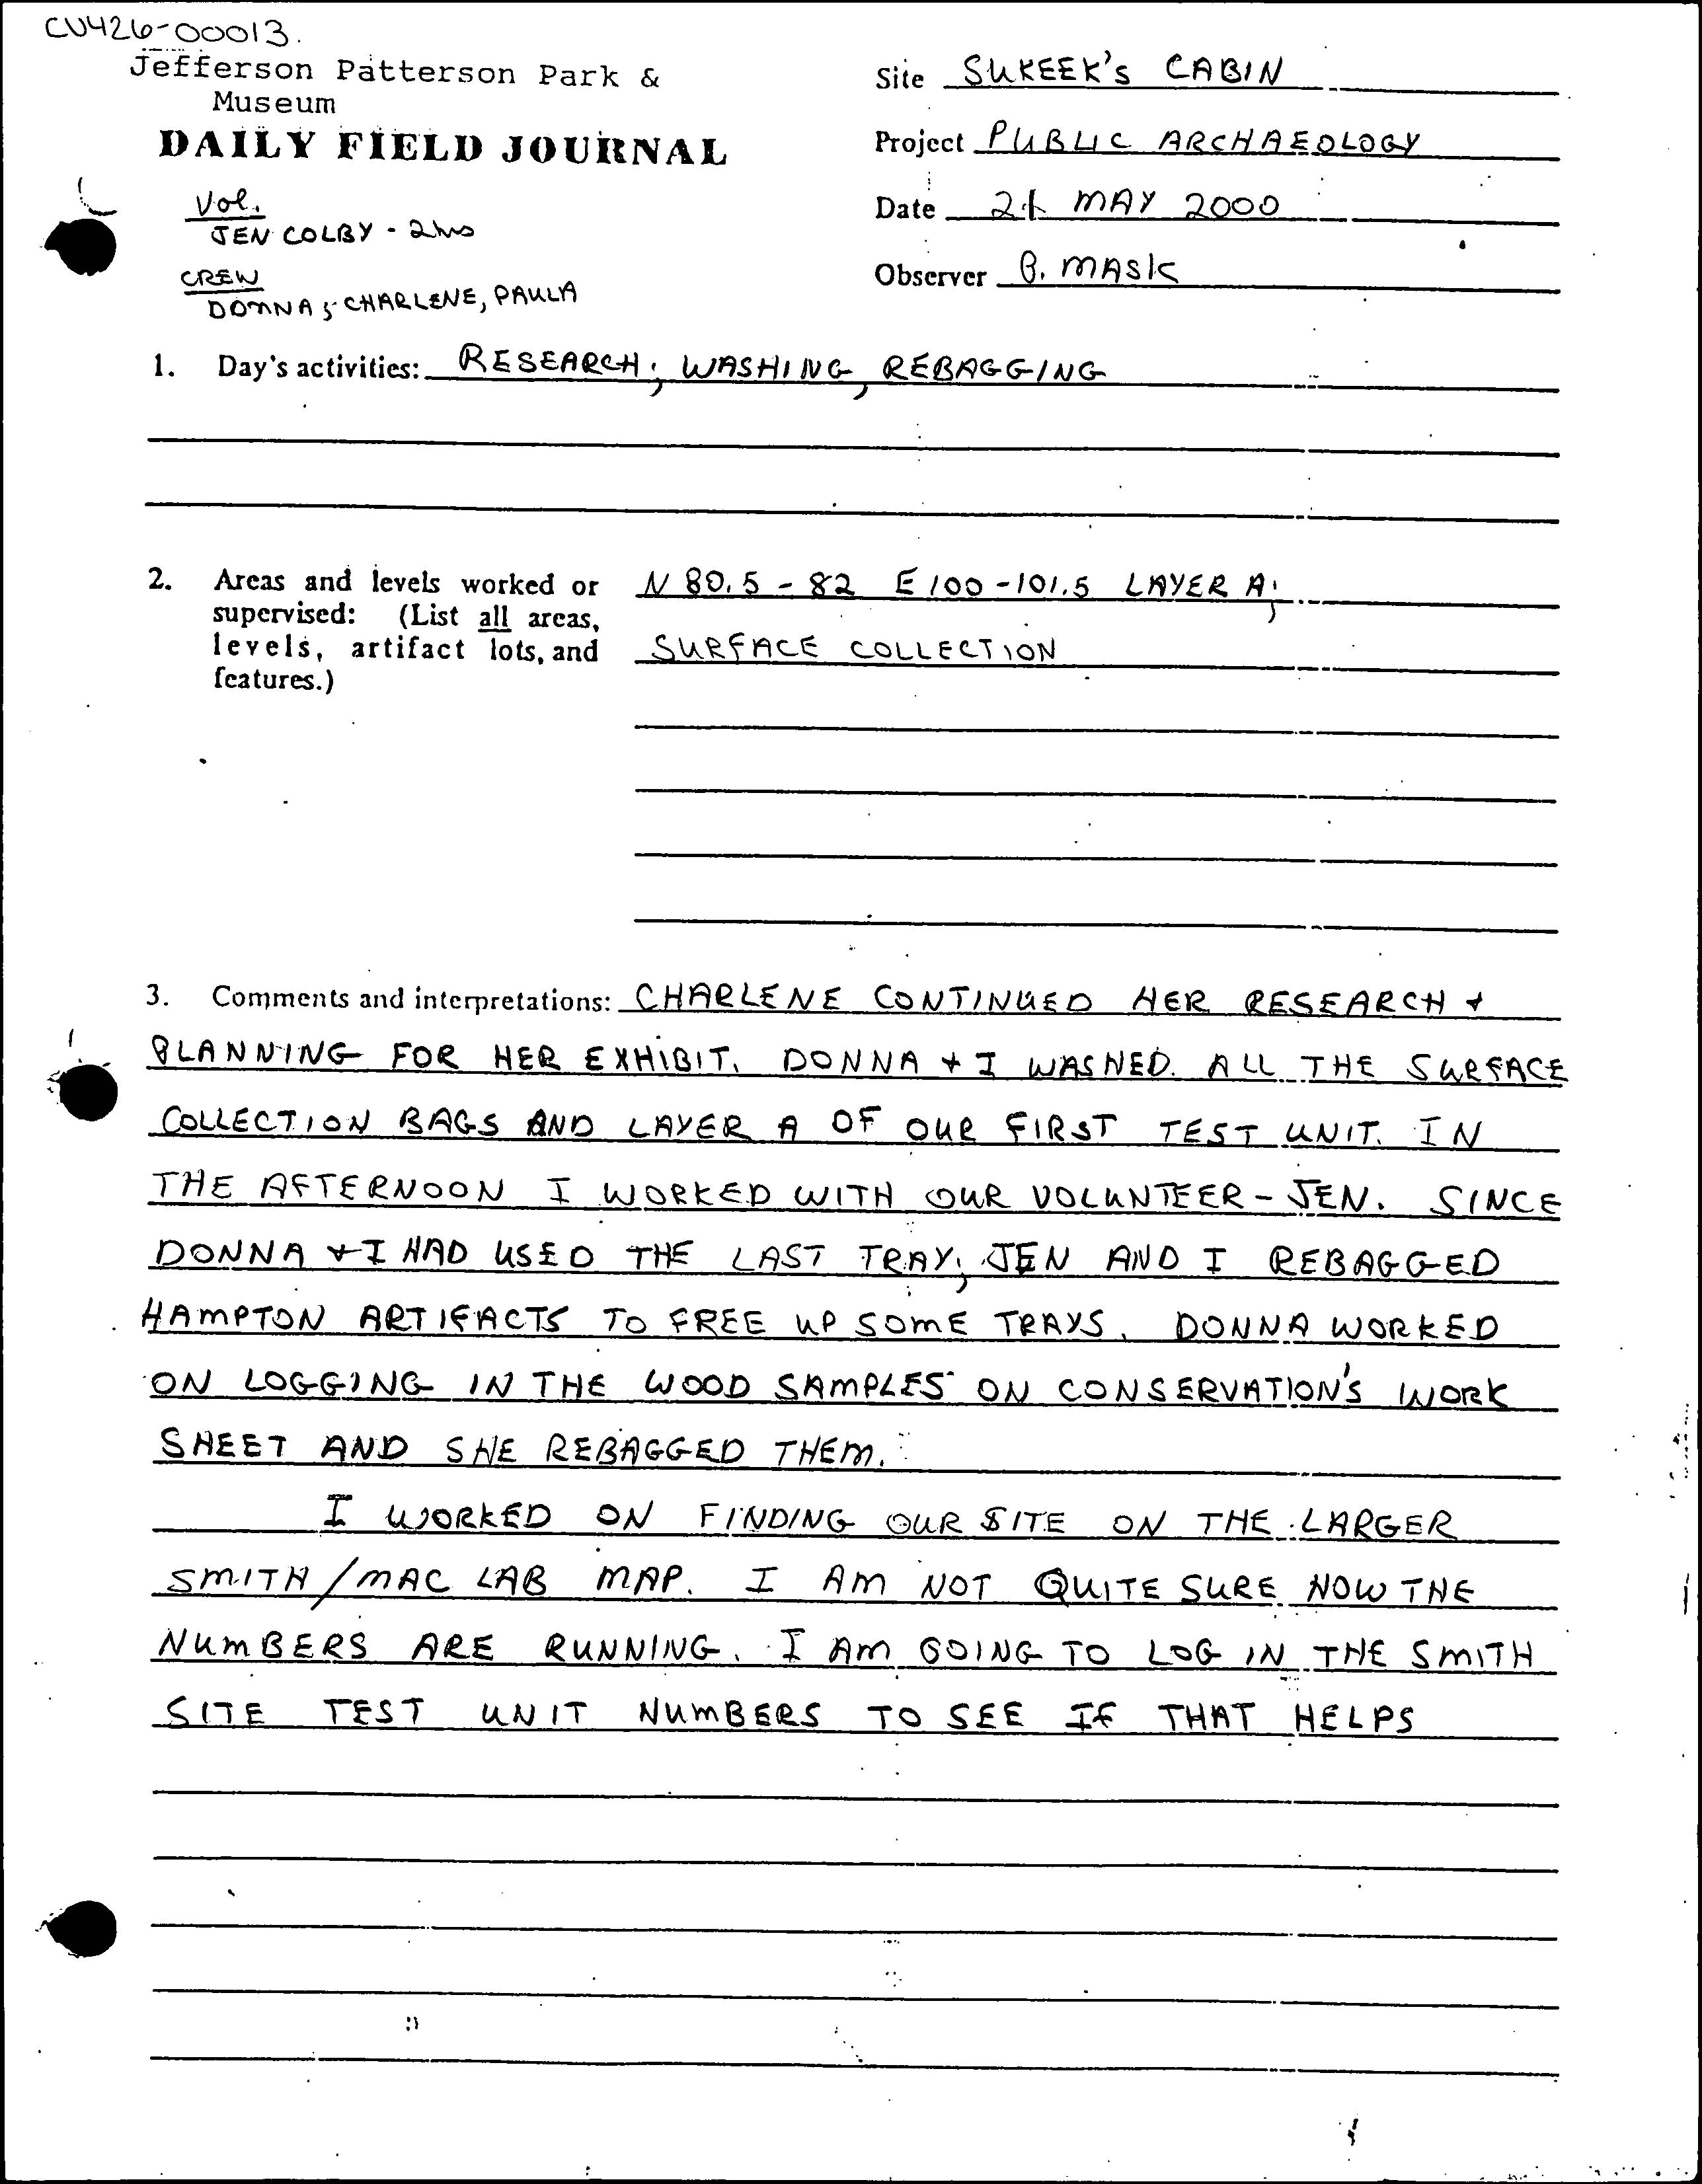 CV426-00013.
Jefferson Patterson Park &
Museum
DAILY FIELD JOURNAL
Vol.
JEN COLBY - 2hrs
CREW
DONNA & CHARLENE, PAULA
Site SUKEEK'S CABIN
Project PUBLIC ARCHAEOLOGY
Date MAY 2000
Observer B. MASK
1. Day's activities: RESEARCH; WASHING, REBAGGING
2. Areas and levels worked or supervised: (List all areas, levels, artifact lots, and features.)
N 80.5 - 82 E 100 - 101.5 LAYER A;
SURFACE COLLECTION
3. Comments and interpretations: CHARLENE CONTINUED HER RESEARCH +
PLANNING FOR HER EXHIBIT. DONNA + I WASHED ALL THE SURFACE
COLLECTION BAGS AND LAYER A OF OUR FIRST TEST UNIT. IN
THE AFTERNOON I WORKED WITH OUR VOLUNTEER - JEN. SINCE
DONNA + I HAD USED THE LAST TRAY; JEN AND I REBAGGED
HAMPTON ARTIFACTS TO FREE UP SOME TRAYS. DONNA WORKED
ON LOGGING IN THE WOOD SAMPLES ON CONSERVATION'S WORK
SHEET AND SHE REBAGGED THEM.
I WORKED ON FINDING OUR SITE ON THE LARGER
SMITH / MAC LAB MAP. I AM NOT QUITE SURE HOW THE
NUMBERS ARE RUNNING. I AM GOING TO LOG IN THE SMITH
SITE TEST UNIT NUMBERS TO SEE IF THAT HELPS